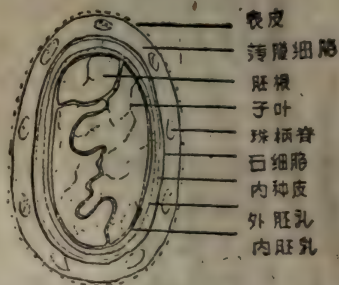 表皮
薄膜细胞
胚根
子叶
珠柄脊
石细胞
内种皮
外胚乳
内胚乳